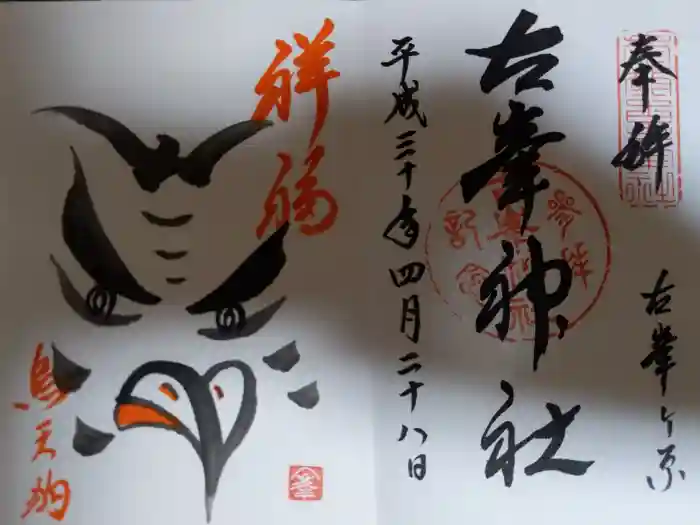 奉拝
古峯ヶ原
古峯神社
平成三十年四月二十八日
祥福
烏天狗
参拝
記念